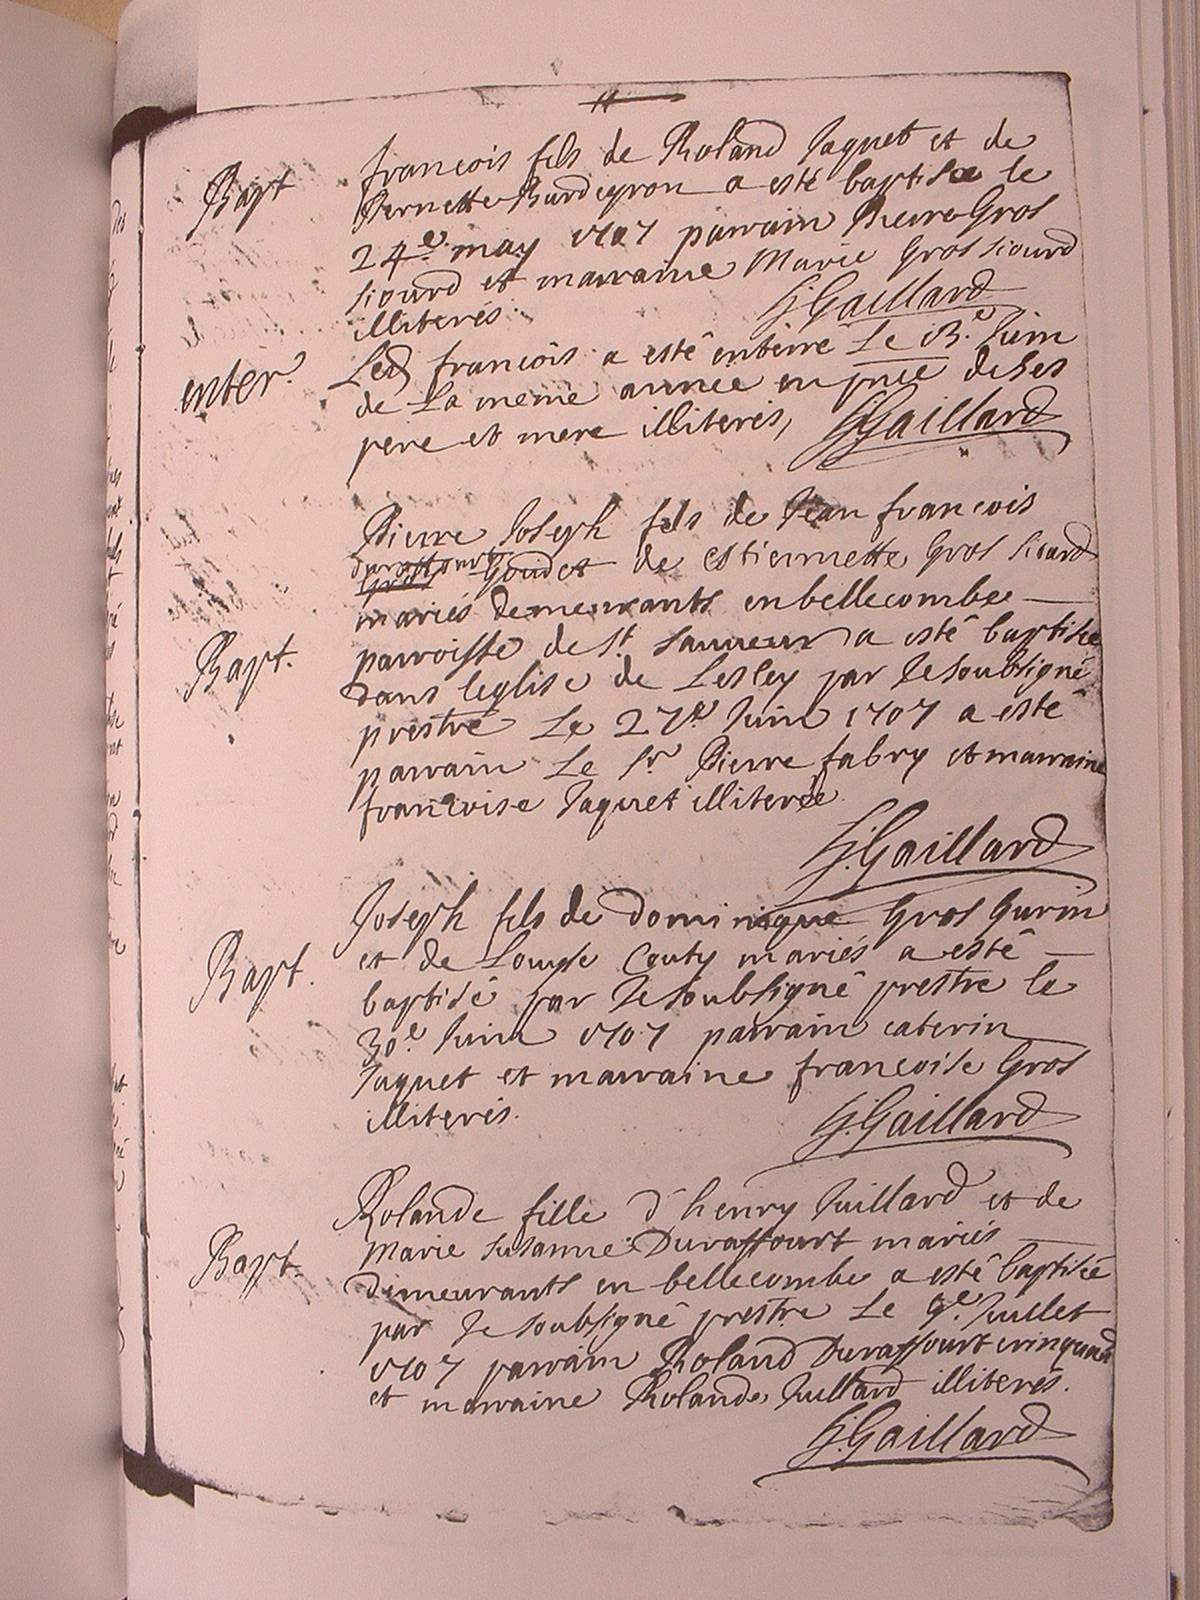 11
Bapt françois fils de Roland Jaquet et de
Pernette Burdeyron a esté baptisé le
24e may 1707 parrain Pierre Gros
siourd et marraine Marie Gros siourd
illiterés. G. Gaillard
enter. Led françois a esté enterré Le 13.e Juin
de La meme année en pnce de ses
pere et mere illiterés, G. Gaillard
Pierre Joseph fils de Jean françois
duraffourt
Goudet de estiennette Gros siourd
mariés demeurants en bellecombe
Bapt. parroisse de St sauveur a esté baptisé
dans leglise de Lesley par Je soubsigné
prestre Le 27e Juin 1707 a esté
parrain Le Sr Pierre fabry et marraine
françoise Jaquet illiterée
G. Gaillard
Joseph fils de dominique Gros Gurin
et de Louyse Couty mariés a esté
Bapt. baptisé par Je soubsigné prestre le
30e Juin 1707 parrain caterin
Jaquet et marraine françoise Gros
illiterés. G. Gaillard
Rolande fille d'henry Juillard et de
Marie susanne Duraffourt mariés
Bapt. demeurants en bellecombe a esté baptisée
par Je soubsigné prestre Le 9e. Juillet
1707 parrain Roland Duraffourt
et marraine Rolande Juillard illiterés.
G. Gaillard